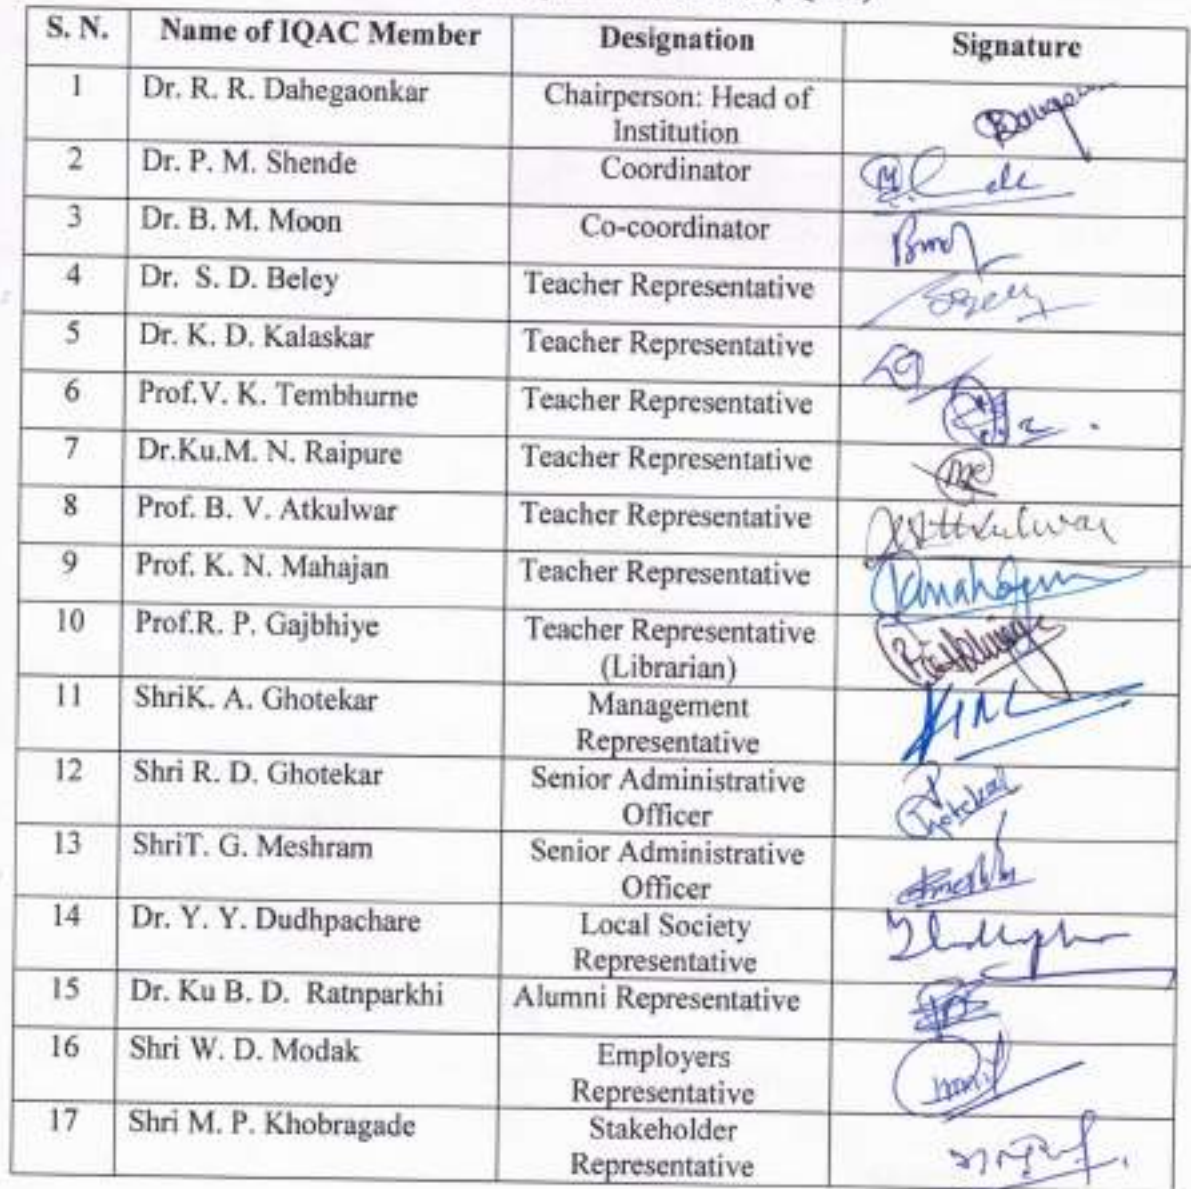 S. N. Name of IQAC Member Designation Signature
1 Dr. R. R. Dahegaonkar Chairperson: Head of
Institution
2 Dr. P. M. Shende Coordinator
3 Dr. B. M. Moon Co-coordinator
4 Dr. S. D. Beley Teacher Representative
5 Dr. K. D. Kalaskar Teacher Representative
6 Prof.V. K. Tembhurne Teacher Representative
7 Dr.Ku.M. N. Raipure Teacher Representative
8 Prof. B. V. Atkulwar Teacher Representative
9 Prof. K. N. Mahajan Teacher Representative
10 Prof.R. P. Gajbhiye Teacher Representative
(Librarian)
11 ShriK. A. Ghotekar Management
Representative
12 Shri R. D. Ghotekar Senior Administrative
Officer
13 ShriT. G. Meshram Senior Administrative
Officer
14 Dr. Y. Y. Dudhpachare Local Society
Representative
15 Dr. Ku B. D. Ratnparkhi Alumni Representative
16 Shri W. D. Modak Employers
Representative
17 Shri M. P. Khobragade Stakeholder
Representative